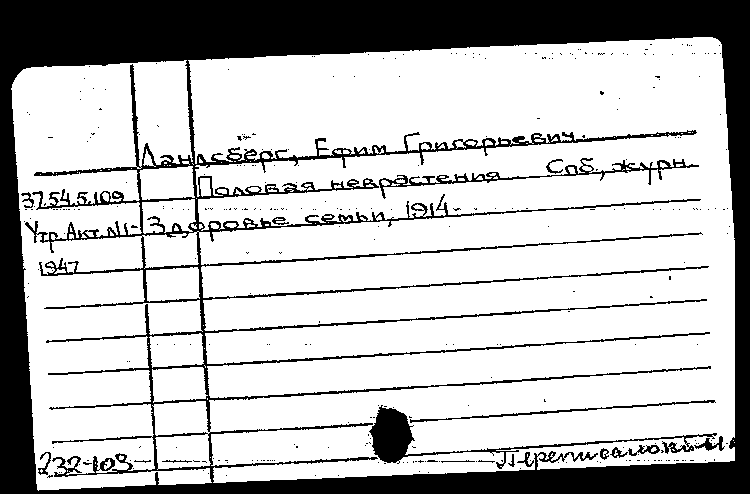 Ландсберг, Ефим Григорьевич.
37.54.5.109 Половая неврастения Спб., журн.
Утр. Акт. №1- Здоровье семьи, 1914.
1947
232-103